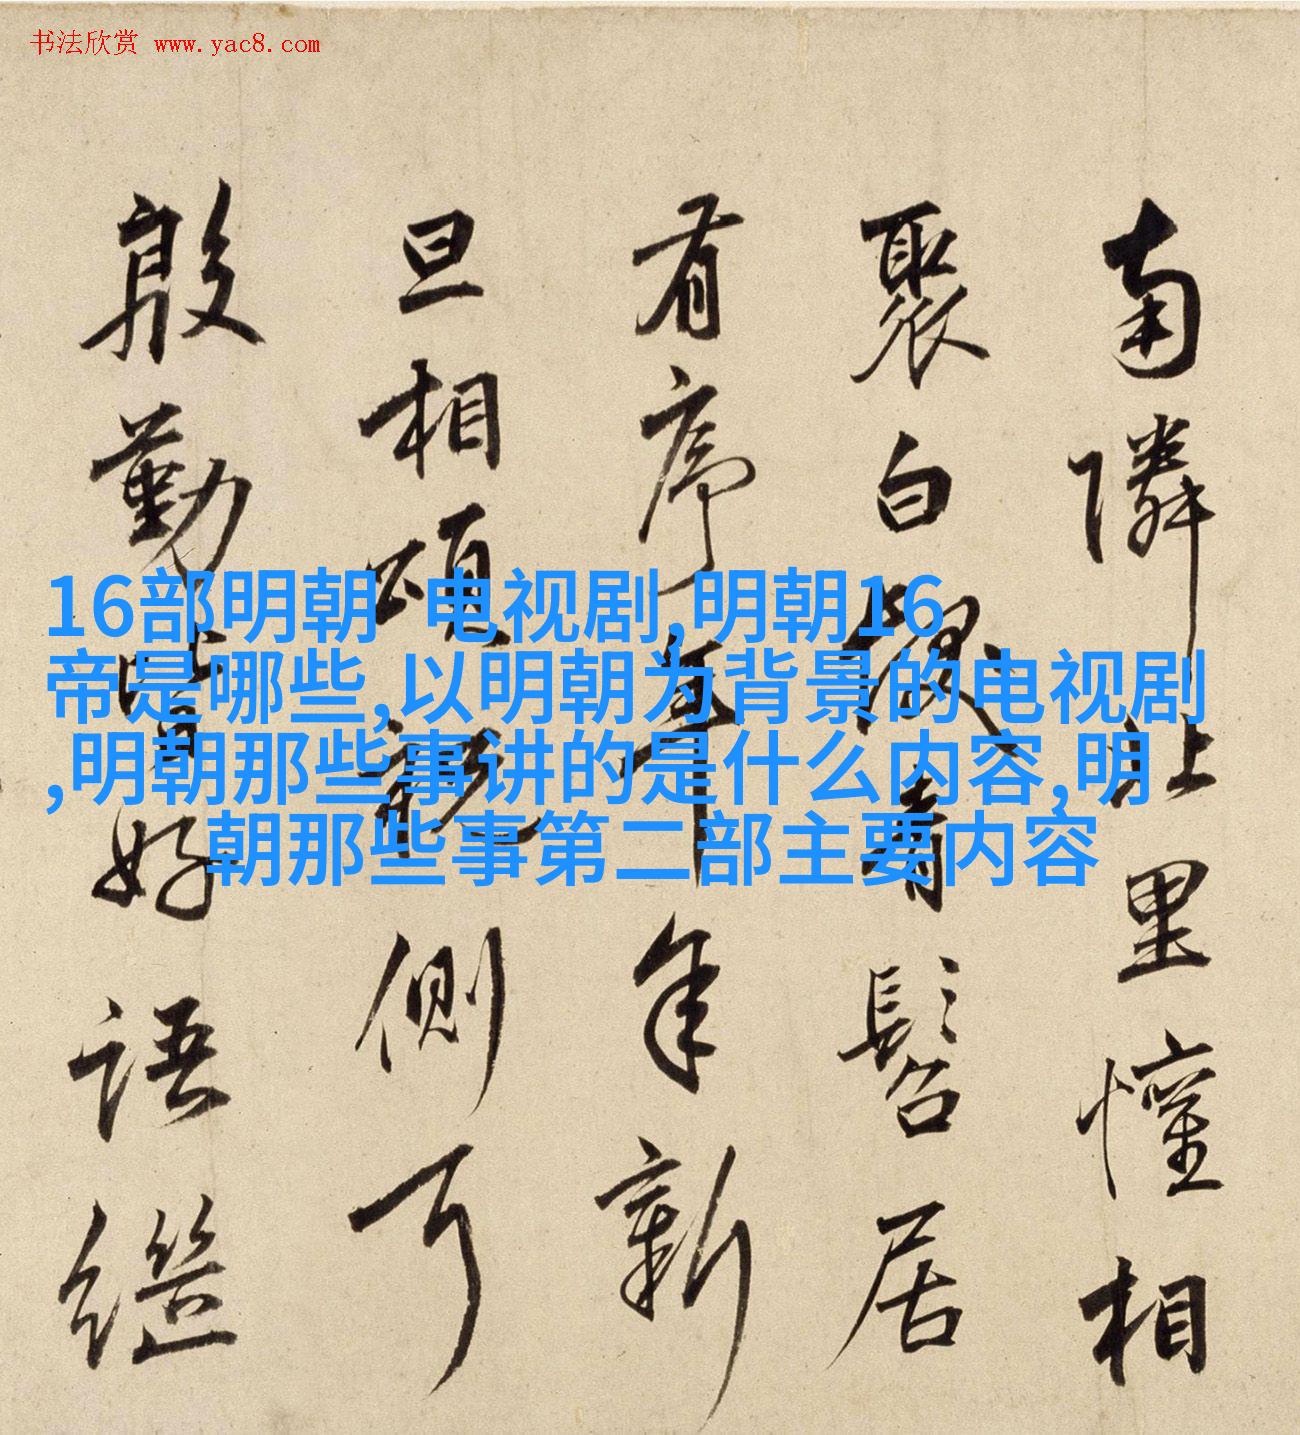 书法欣赏 www.yac8.com
16部明朝 电视剧,明朝16
帝是哪些,以明朝为背景的电视剧
,明朝那些事讲的是什么内容,明
朝那些事第二部主要内容
南隣北里懽相
聚白 髫居
有序年年新
旦相頌 側耳
殷勤 好語繼